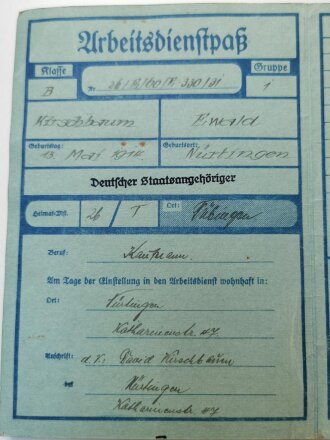 Arbeitsdienstpaß
Klasse Gruppe
B Nr. 26/ 1
Kirschbaum Ewald
Geburtstag: Geburtsort:
13. Mai 1914 Nürtingen
Deutscher Staatsangehöriger
Heimat-Distr. 26 / T Ort: Tübingen
Beruf: Kaufmann
Am Tage der Einstellung in den Arbeitsdienst wohnhaft in:
Ort: Nürtingen
Katharinenstr 47
Anschrift: d. V. David Kirschbaum
Nürtingen
Katharinenstr 47